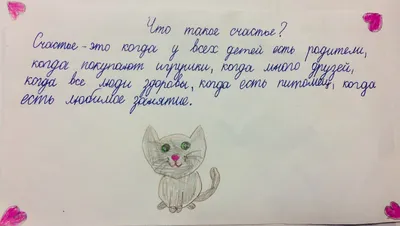 Что такое счастье?
Счастье - это когда у всех детей есть родители,
когда покупают игрушки, когда много друзей,
когда все люди здоровы, когда есть питомец, когда
есть любимое занятие.